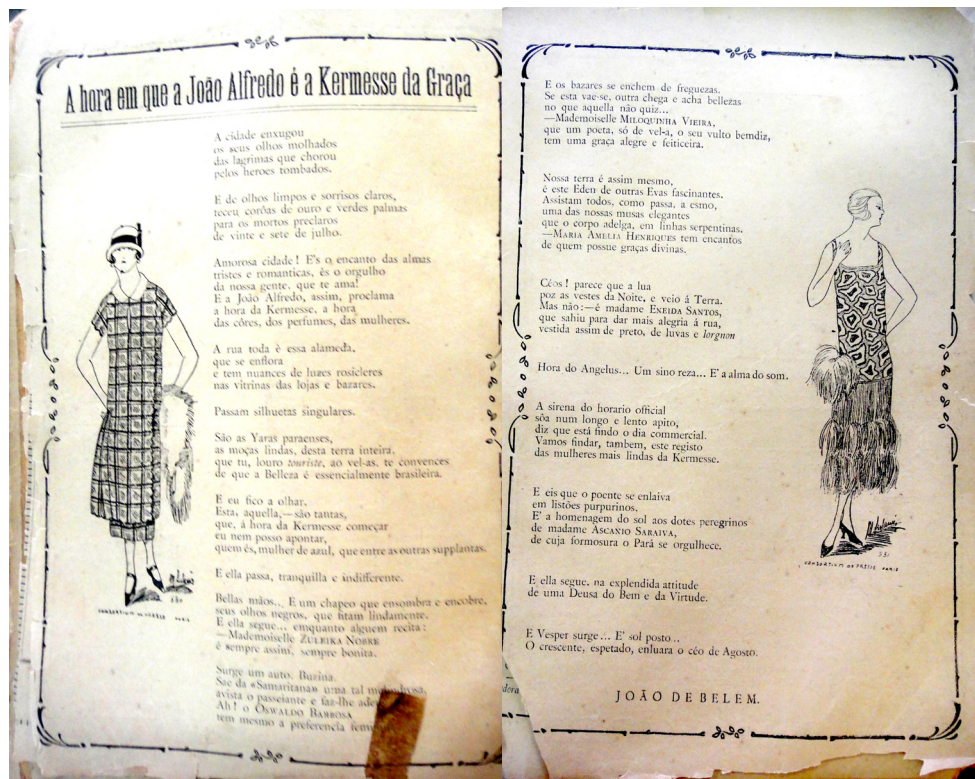 A hora em que a João Alfredo é a Kermesse da Graça
A cidade enxugou
os seus olhos molhados
das lagrimas que chorou
pelos heroes tombados.
E de olhos limpos e sorrisos claros,
teceu corôas de ouro e verdes palmas
para os mortos preclaros
de vinte e sete de julho.
Amorosa cidade! E's o encanto das almas
tristes e romanticas, és o orgulho
da nossa gente, que te ama!
E a João Alfredo, assim, proclama
a hora da Kermesse, a hora
das côres, dos perfumes, das mulheres.
A rua toda é essa alameda,
que se enflora
e tem nuances de luzes rosicleres
nas vitrinas das lojas e bazares.
Passam silhuetas singulares.
São as Yaras paraenses,
as moças lindas, desta terra inteira,
que tu, louro touriste, ao vel-as, te convences
de que a Belleza é essencialmente brasileira.
E eu fico a olhar.
Esta, aquella,—são tantas,
que, á hora da Kermesse começar
eu nem posso apontar,
quem és, mulher de azul, que entre as outras supplantas.
E ella passa, tranquilla e indifferente.
Bellas mãos... E um chapeo que ensombra e encobre,
seus olhos negros, que fitam lindamente.
E ella segue... emquanto alguem recita:
—Mademoiselle ZULEIKA NOBRE
é sempre assim, sempre bonita.
Surge um auto. Buzina.
Sae da «Samaritana» uma tal
avista o passeiante e faz-lhe
Ah! o OSWALDO BARBOSA
tem mesmo a preferencia
CONSORTIUM DE PRESSE PARIS
E os bazares se enchem de freguezas.
Se esta vae-se, outra chega e acha bellezas
no que aquella não quiz...
—Mademoiselle MILOQUINHA VIEIRA,
que um poeta, só de vel-a, o seu vulto bemdiz,
tem uma graça alegre e feiticeira.
Nossa terra é assim mesmo,
é este Eden de outras Evas fascinantes.
Assistam todos, como passa, a esmo,
uma das nossas musas elegantes
que o corpo adelga, em linhas serpentinas.
—MARIA AMELIA HENRIQUES tem encantos
de quem possue graças divinas.
Céos! parece que a lua
poz as vestes da Noite, e veio á Terra.
Mas não:—é madame ENEIDA SANTOS,
que sahiu para dar mais alegria á rua,
vestida assim de preto, de luvas e lorgnon
Hora do Angelus... Um sino reza... E' a alma do som.
A sirena do horario official
sôa num longo e lento apito,
diz que está findo o dia commercial.
Vamos findar, tambem, este registo
das mulheres mais lindas da Kermesse.
E eis que o poente se enlaiva
em listões purpurinos.
E' a homenagem do sol aos dotes peregrinos
de madame ASCANIO SARAIVA,
de cuja formosura o Pará se orgulhece.
E ella segue, na explendida attitude
de uma Deusa do Bem e da Virtude.
E Vesper surge... E' sol posto..
O crescente, espetado, enluara o céo de Agosto.
JOÃO DE BELEM.
331
CONSORTIUM DE PRESSE PARIS